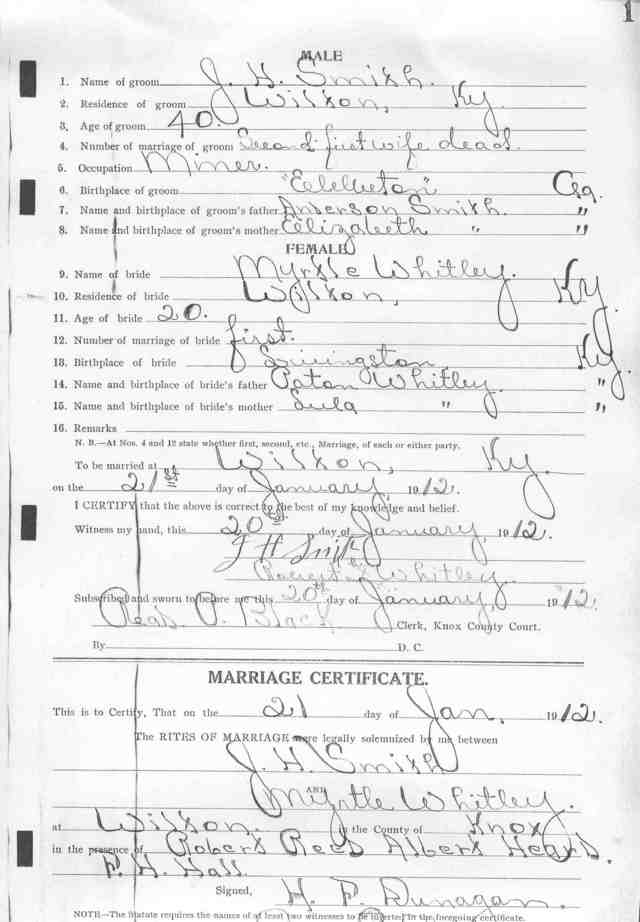 1
MALE
1. Name of groom J. H. Smith.
2. Residence of groom Wilton, Ky
3. Age of groom 40.
4. Number of marriage of groom Second first wife dead.
5. Occupation Miner.
6. Birthplace of groom Ga.
7. Name and birthplace of groom's father Anderson Smith. "
8. Name and birthplace of groom's mother Elizabeth " "
FEMALE
9. Name of bride Myrtle Whitley.
10. Residence of bride Wilton, Ky
11. Age of bride 20.
12. Number of marriage of bride first.
13. Birthplace of bride Livingston Ky.
14. Name and birthplace of bride's father Paton Whitley. "
15. Name and birthplace of bride's mother Lula " "
16. Remarks
N. B.—At Nos. 4 and 12 state whether first, second, etc., Marriage, of each or either party.
To be married at Wilton, Ky.
on the 21st day of January, 1912.
I CERTIFY that the above is correct to the best of my knowledge and belief.
Witness my hand, this 20th day of January, 1912.
J H Smith
Whitley.
Subscribed and sworn to before me this 20th day of January, 1912.
Read P. Black Clerk, Knox County Court.
By D. C.
MARRIAGE CERTIFICATE.
This is to Certify, That on the 21 day of Jan, 1912.
The RITES OF MARRIAGE were legally solemnized by me between
J. H. Smith
AND
Myrtle Whitley.
at Wilton. in the County of Knox
in the presence of Robert Reed Albert Heard.
F. H. Hall
Signed, H. P. Dunagan.
NOTE—The Statate requires the names of at least two witnesses to be inserted in the foregoing certificate.